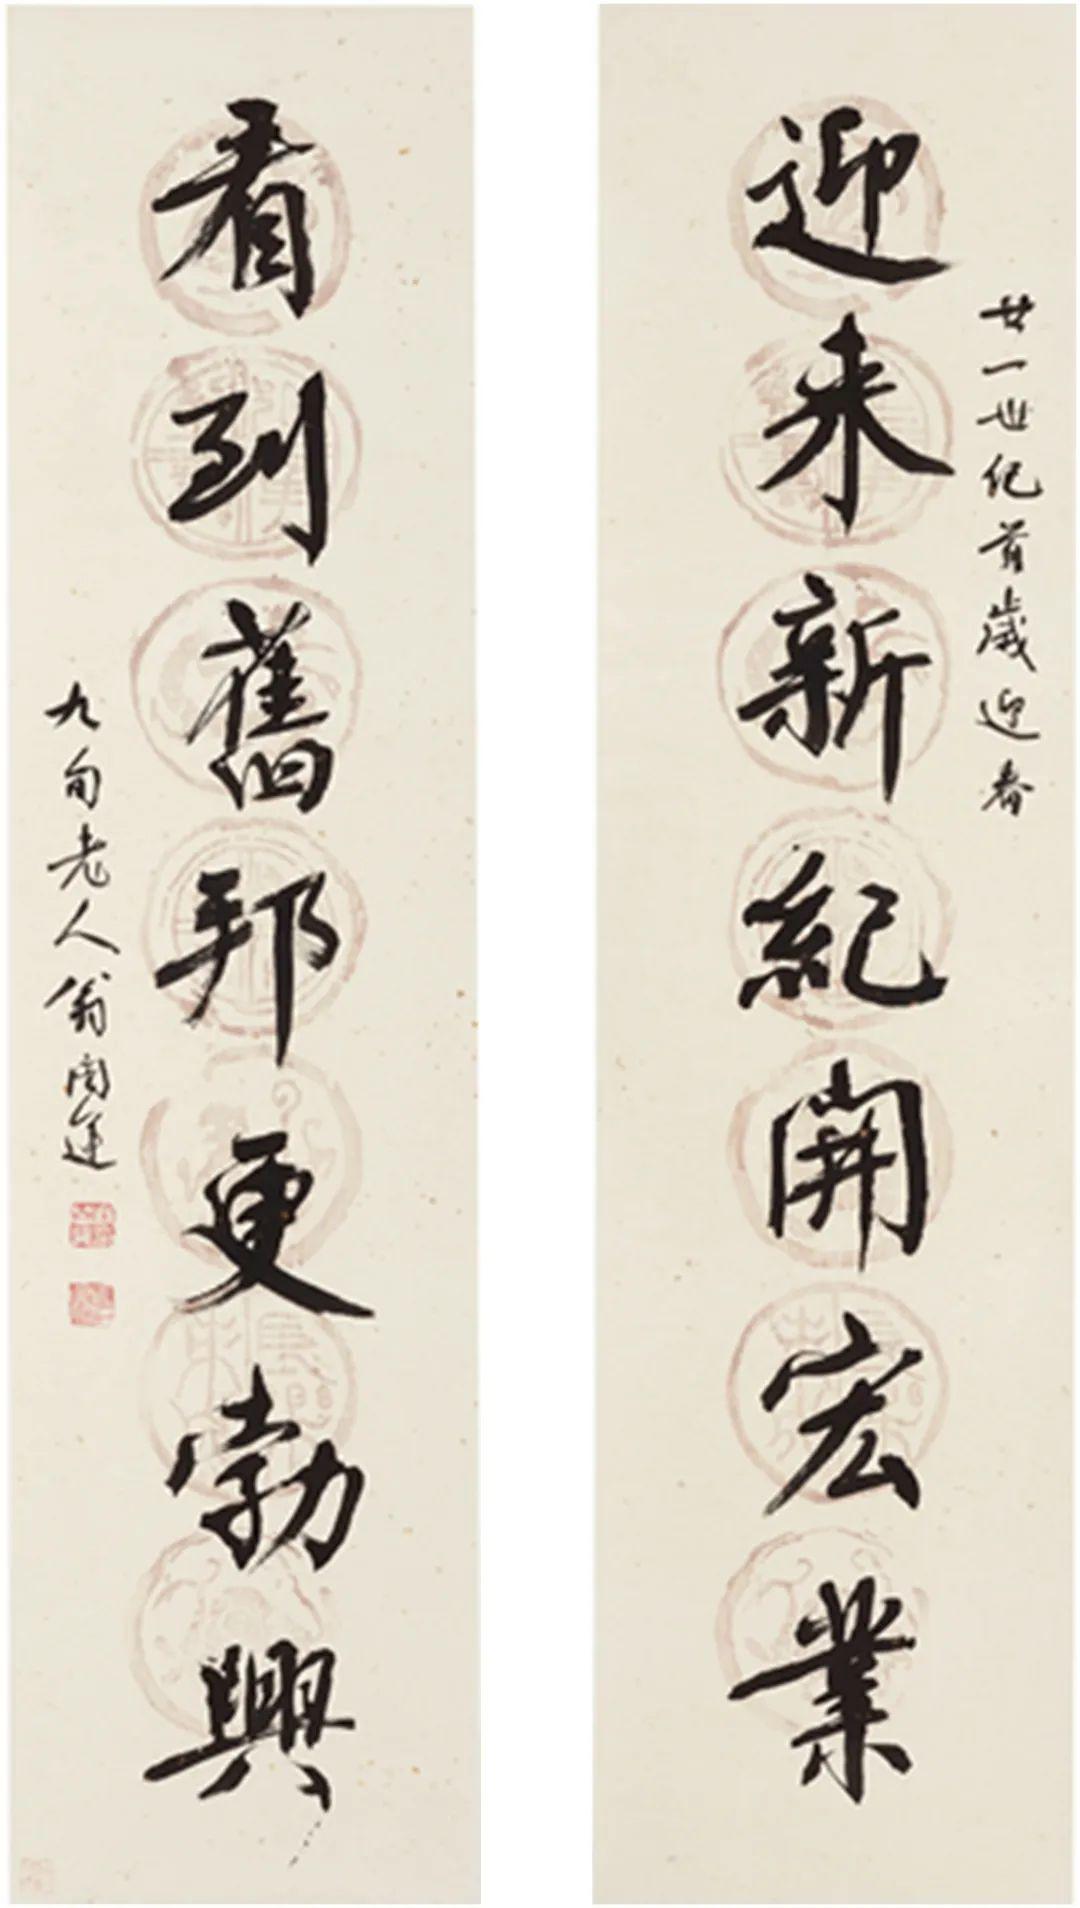 廿一世纪首歲迎春
迎来新紀開宏業
看到舊邦更勃興
九旬老人翁闿運